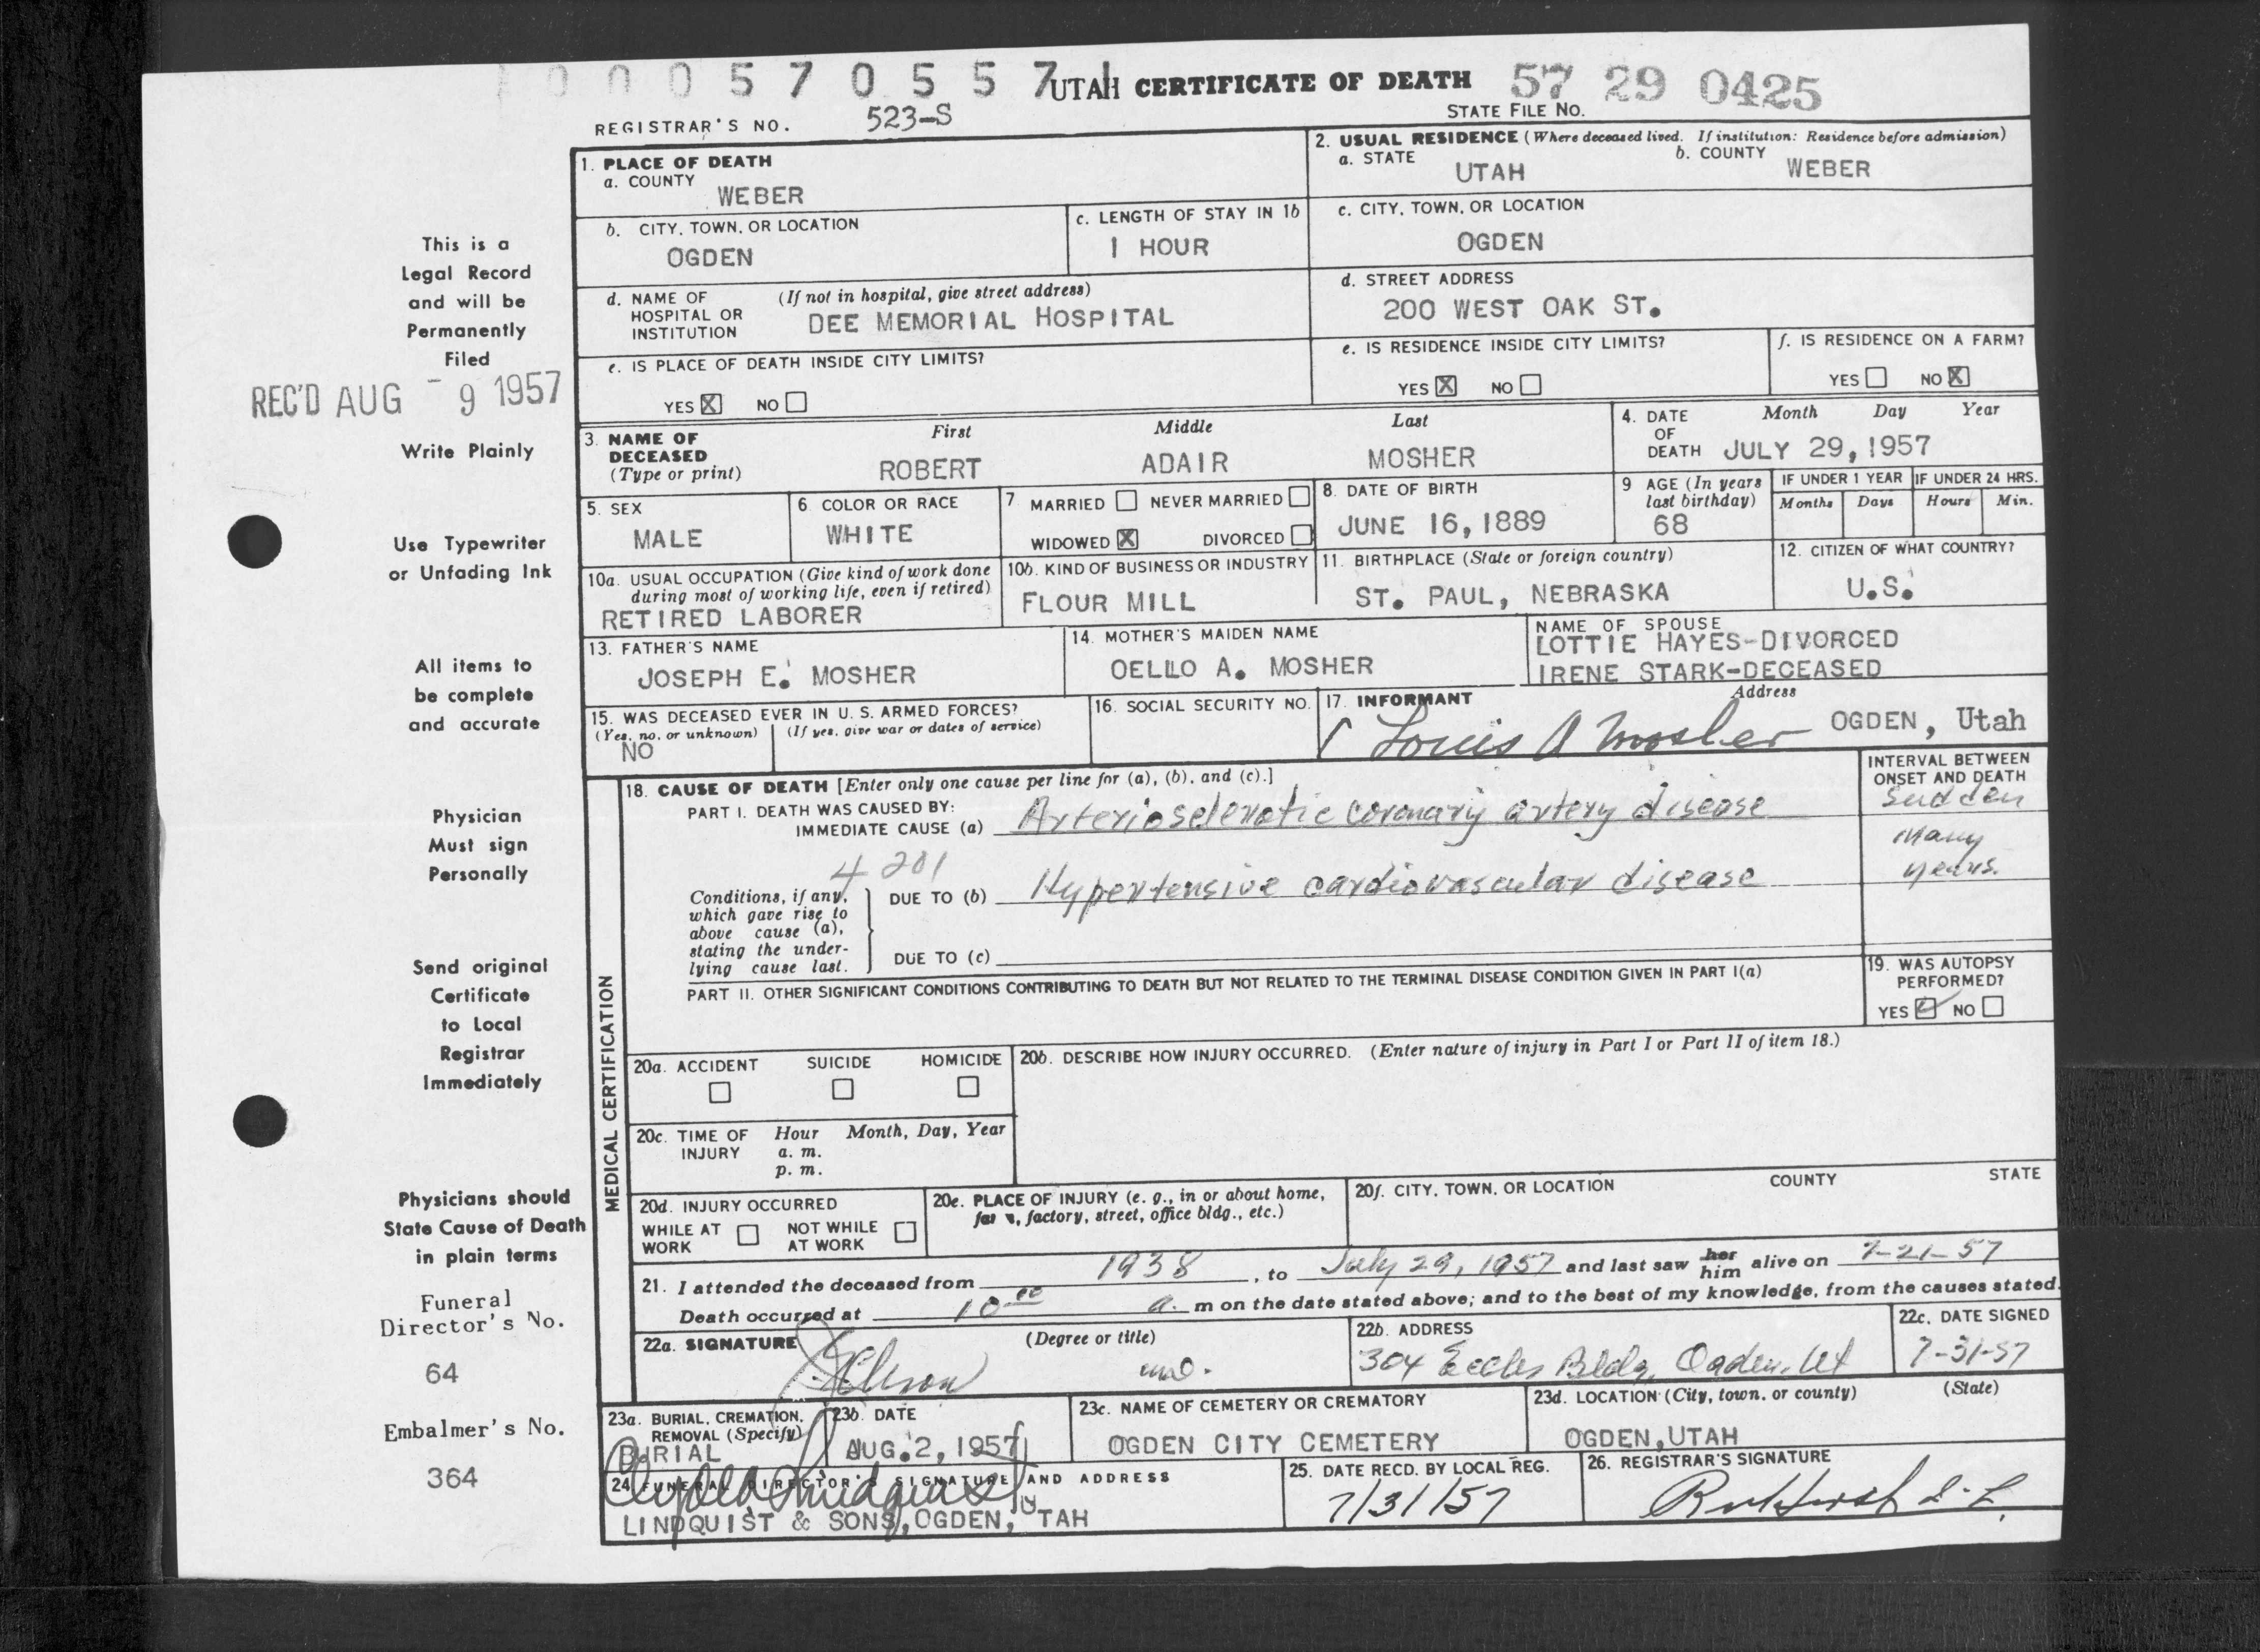 0 0 0 5 7 0 5 5 7 UTAH CERTIFICATE OF DEATH 57 29 0425
STATE FILE NO.
REGISTRAR'S NO. 523-S
1. PLACE OF DEATH
a. COUNTY
WEBER
2. USUAL RESIDENCE (Where deceased lived. If institution: Residence before admission)
a. STATE UTAH b. COUNTY WEBER
b. CITY, TOWN, OR LOCATION
OGDEN
c. LENGTH OF STAY IN 1b
1 HOUR
c. CITY, TOWN, OR LOCATION
OGDEN
d. NAME OF HOSPITAL OR INSTITUTION (If not in hospital, give street address)
DEE MEMORIAL HOSPITAL
d. STREET ADDRESS
200 WEST OAK ST.
e. IS PLACE OF DEATH INSIDE CITY LIMITS?
YES X NO
e. IS RESIDENCE INSIDE CITY LIMITS?
YES X NO
f. IS RESIDENCE ON A FARM?
YES NO X
3. NAME OF DECEASED (Type or print)
First Middle Last
ROBERT ADAIR MOSHER
4. DATE OF DEATH Month Day Year
JULY 29, 1957
5. SEX
MALE
6. COLOR OR RACE
WHITE
7. MARRIED NEVER MARRIED
WIDOWED X DIVORCED
8. DATE OF BIRTH
JUNE 16, 1889
9 AGE (In years last birthday)
68
IF UNDER 1 YEAR IF UNDER 24 HRS.
Months Days Hours Min.
10a. USUAL OCCUPATION (Give kind of work done during most of working life, even if retired)
RETIRED LABORER
10b. KIND OF BUSINESS OR INDUSTRY
FLOUR MILL
11. BIRTHPLACE (State or foreign country)
ST. PAUL, NEBRASKA
12. CITIZEN OF WHAT COUNTRY?
U.S.
13. FATHER'S NAME
JOSEPH E. MOSHER
14. MOTHER'S MAIDEN NAME
OELLO A. MOSHER
NAME OF SPOUSE
LOTTIE HAYES-DIVORCED
IRENE STARK-DECEASED
15. WAS DECEASED EVER IN U. S. ARMED FORCES?
(Yes, no, or unknown) (If yes, give war or dates of service)
NO
16. SOCIAL SECURITY NO.
17. INFORMANT Address
Louis A Mosher OGDEN, Utah
MEDICAL CERTIFICATION
18. CAUSE OF DEATH [Enter only one cause per line for (a), (b), and (c).]
INTERVAL BETWEEN ONSET AND DEATH
PART I. DEATH WAS CAUSED BY:
IMMEDIATE CAUSE (a) Arteriosclerotic coronary artery disease
Sudden
4201
Conditions, if any, which gave rise to above cause (a), stating the underlying cause last.
DUE TO (b) Hypertensive cardiovascular disease
many years.
DUE TO (c)
PART II. OTHER SIGNIFICANT CONDITIONS CONTRIBUTING TO DEATH BUT NOT RELATED TO THE TERMINAL DISEASE CONDITION GIVEN IN PART I(a)
19. WAS AUTOPSY PERFORMED?
YES NO
20a. ACCIDENT SUICIDE HOMICIDE
20b. DESCRIBE HOW INJURY OCCURRED. (Enter nature of injury in Part I or Part II of item 18.)
20c. TIME OF INJURY Hour Month, Day, Year
a. m.
p. m.
20d. INJURY OCCURRED
WHILE AT WORK NOT WHILE AT WORK
20e. PLACE OF INJURY (e. g., in or about home, factory, street, office bldg., etc.)
20f. CITY, TOWN, OR LOCATION COUNTY STATE
21. I attended the deceased from 1938, to July 29, 1957 and last saw her him alive on 7-21-57
Death occurred at 10 00 a. m on the date stated above; and to the best of my knowledge, from the causes stated.
22a. SIGNATURE (Degree or title)
22b. ADDRESS
304 Eccles Bldg, Ogden, Ut
22c. DATE SIGNED
7-31-57
23a. BURIAL, CREMATION, REMOVAL (Specify)
BURIAL
23b. DATE
AUG. 2, 1957
23c. NAME OF CEMETERY OR CREMATORY
OGDEN CITY CEMETERY
23d. LOCATION (City, town, or county) (State)
OGDEN, UTAH
24. FUNERAL DIRECTOR'S SIGNATURE AND ADDRESS
LINDQUIST & SONS, OGDEN, UTAH
25. DATE RECD. BY LOCAL REG.
7/31/57
26. REGISTRAR'S SIGNATURE
This is a
Legal Record
and will be
Permanently
Filed
REC'D AUG - 9 1957
Write Plainly
Use Typewriter
or Unfading Ink
All items to
be complete
and accurate
Physician
Must sign
Personally
Send original
Certificate
to Local
Registrar
Immediately
Physicians should
State Cause of Death
in plain terms
Funeral
Director's No.
64
Embalmer's No.
364